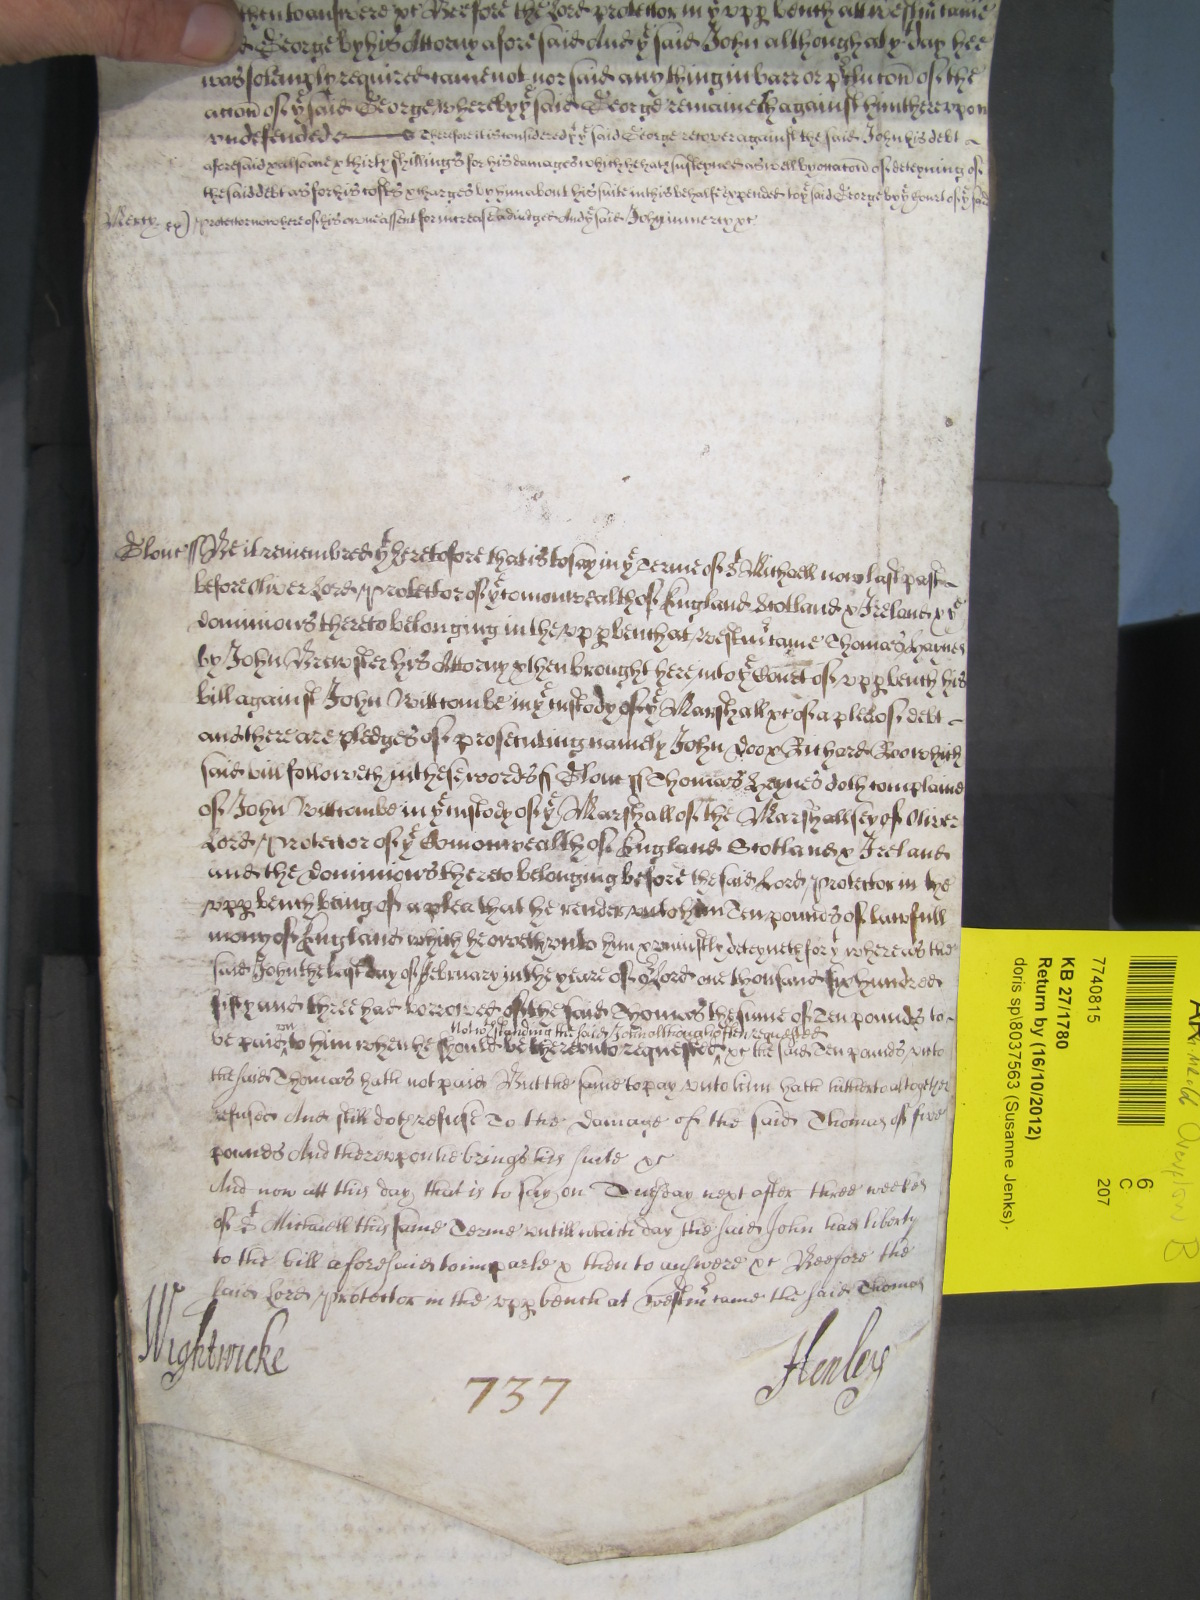 then to answere &c Beefore the Lord protector in yᵉ upp bench att westm̄ came
George by his Attorny afore said And yᵉ said John allthough at yᵗ day hee
was solemply required came not nor said any thing in barr or p̄clucon̄ of the
accon̄ of yᵉ said George whereby yᵉ said George remaineth against him thereupon
undefended Therefore it is considered yᵗ yᵉ said George recover against the said John his debt
aforesaid & alsoe & thirty shillings for his damages which he hath susteyned as well by occacon̄ of deteyning of
the said debt as for his costs & charges by him about his suite in this behalfe expended to yᵉ said George by yᵉ Court of yᵉ said
Mercy &c) protector now here of his owne assent for increase adiudged And yᵉ said John in mercy &c
Glouc ss Be it remembred yᵗ heretofore that is to say in yᵉ Terme of Sᵗ Michaell now last past
before Oliver Lord Protector of yᵉ comonwealth of England Scotland & Ireland & yᵉ
dominions thereto belonging in the upp bench at westm̄ came Thomas Haynes
by John Brewster his Attorny & then brought here into yᵉ Court of upp bench his
bill against John Wittcombe in yᵉ custody of yᵉ Marshall &c of a plea of debt
and there are pledges of prosecuting namely John Doo & Richard Roo which
said bill followeth in these woords ss Glouc ss Thomas Heynes doth complaine
of John Wittcombe in yᵉ custody of yᵉ Marshall of the Marshallsey of Oliver
Lord Protector of yᵉ Comonwealth of England Scotland & Ireland
and the dominions thereto belonging before the said Lord Protector in the
upp bench being of a plea that he render unto him Ten pounds of lawfull
mony of England which he oweth unto him & uniustly deteyneth for yᵗ whereas the
said John the last day of February in the yeare of oʳ Lord one thousand six hundred
fifty and three had borrowed of the said Thomas the sume of Ten pounds to
Notwᵗʰstanding the said John allthough often requested
be paid to him when he should be thereunto requested &c the said Ten pounds unto
the said Thomas hath not paid But the same to pay unto him hath hitherto altogether
refused And still doth refuse To the damage of the said Thomas of five
pounds And thereupon he brings his suite &c
And now att this day that is to say on Tuesday next after three weekes
of Sᵗ Michaell this same Terme untill which day the said John had liberty
to the bill aforesaid to imparle & then to answere &c Beefore the
said Lord Protector in the upp bench at westm̄ came the said Thomas
Wightwicke
Henley
737
7740815
KB 27/1780
Return by (16/10/2012)
doris sp\8037563 (Susanne Jenks)
207
6
C